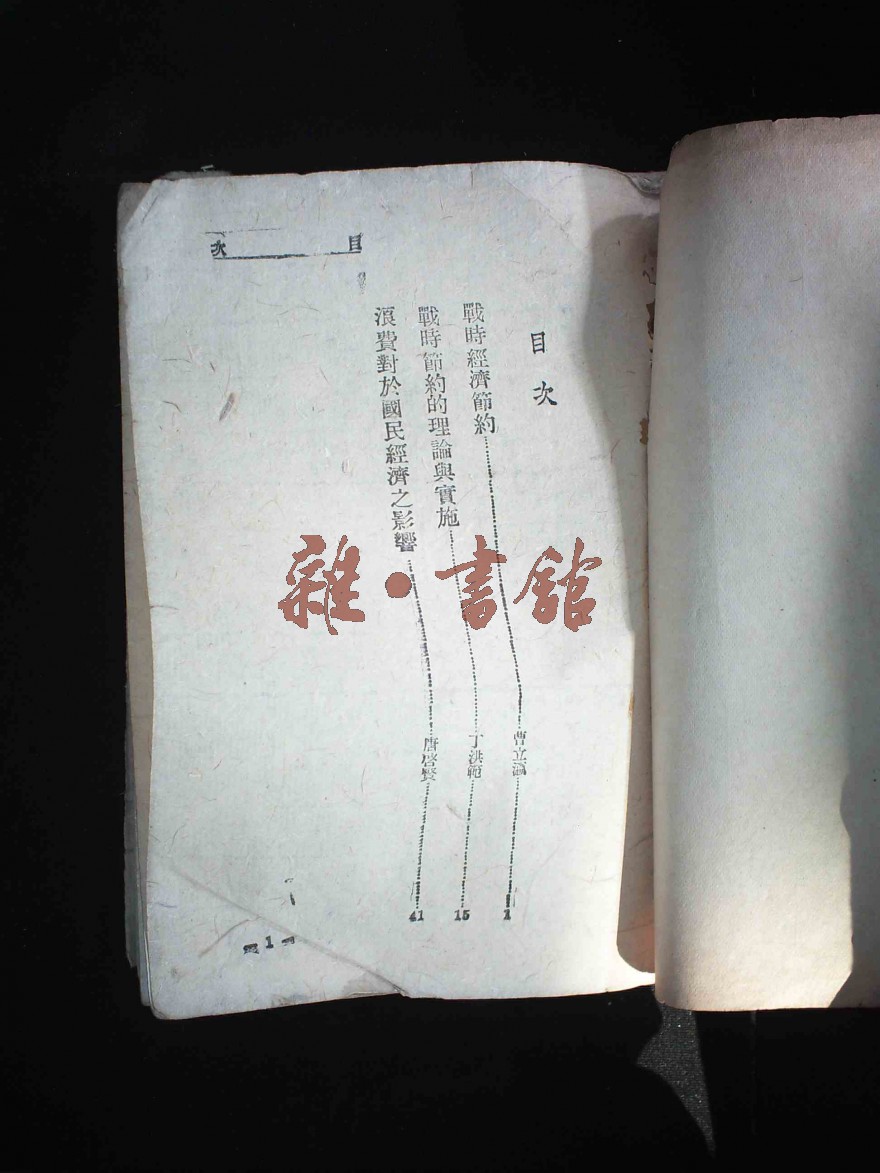 目次
目次
戰時經濟節約 曹立瀛 1
戰時節約的理論與實施 丁洪範 15
浪費對於國民經濟之影響 唐啓賢 41
1
雜·書館